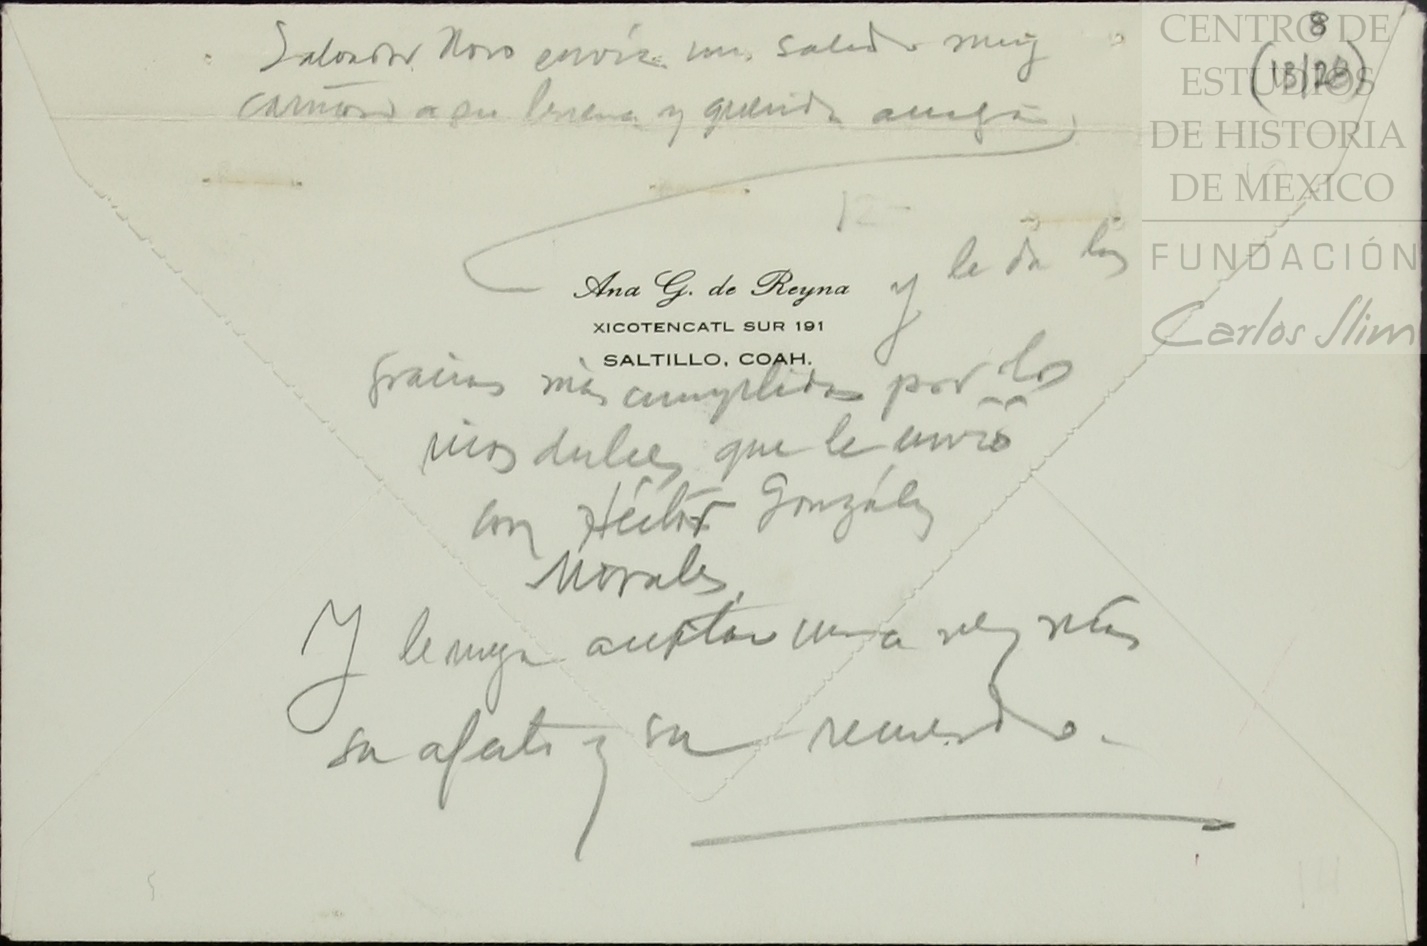 Salvador Novo envía un saludo muy
cariñoso a su buena y querida amiga,
12-
Ana G. de Reyna
XICOTENCATL SUR 191
SALTILLO, COAH.
y le da las
gracias más cumplidas por los
ricos dulces que le envió
con Héctor González
Morales.
Y le ruega aceptar una vez más
su afecto y su recuerdo.
8
(13/28)
CENTRO DE
ESTUDIOS
DE HISTORIA
DE MEXICO
FUNDACIÓN
Carlos Slim